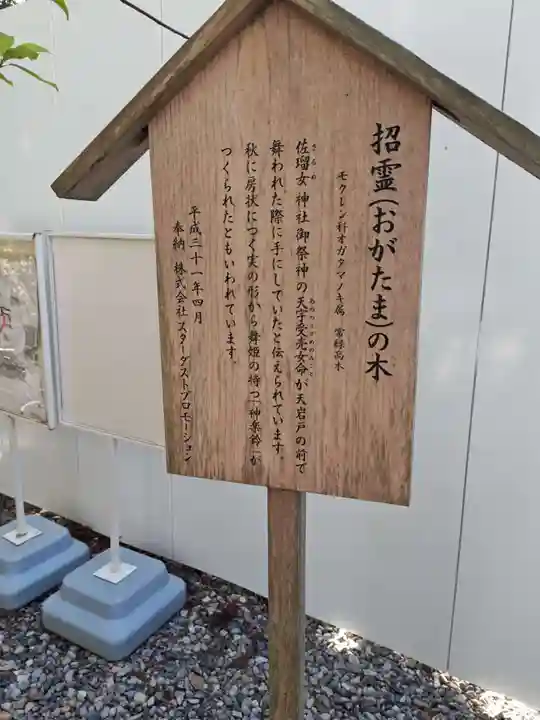 招霊(おがたま)の木
モクレン科オガタマノキ属 常緑高木
佐瑠女神社御祭神の天宇受売女命が天岩戸の前で
舞われた際に手にしていたと伝えられています。
秋に房状につく実の形から舞姫の持つ「神楽鈴」が
つくられたともいわれています。
平成三十一年四月
奉納 株式会社スターダストプロモーション